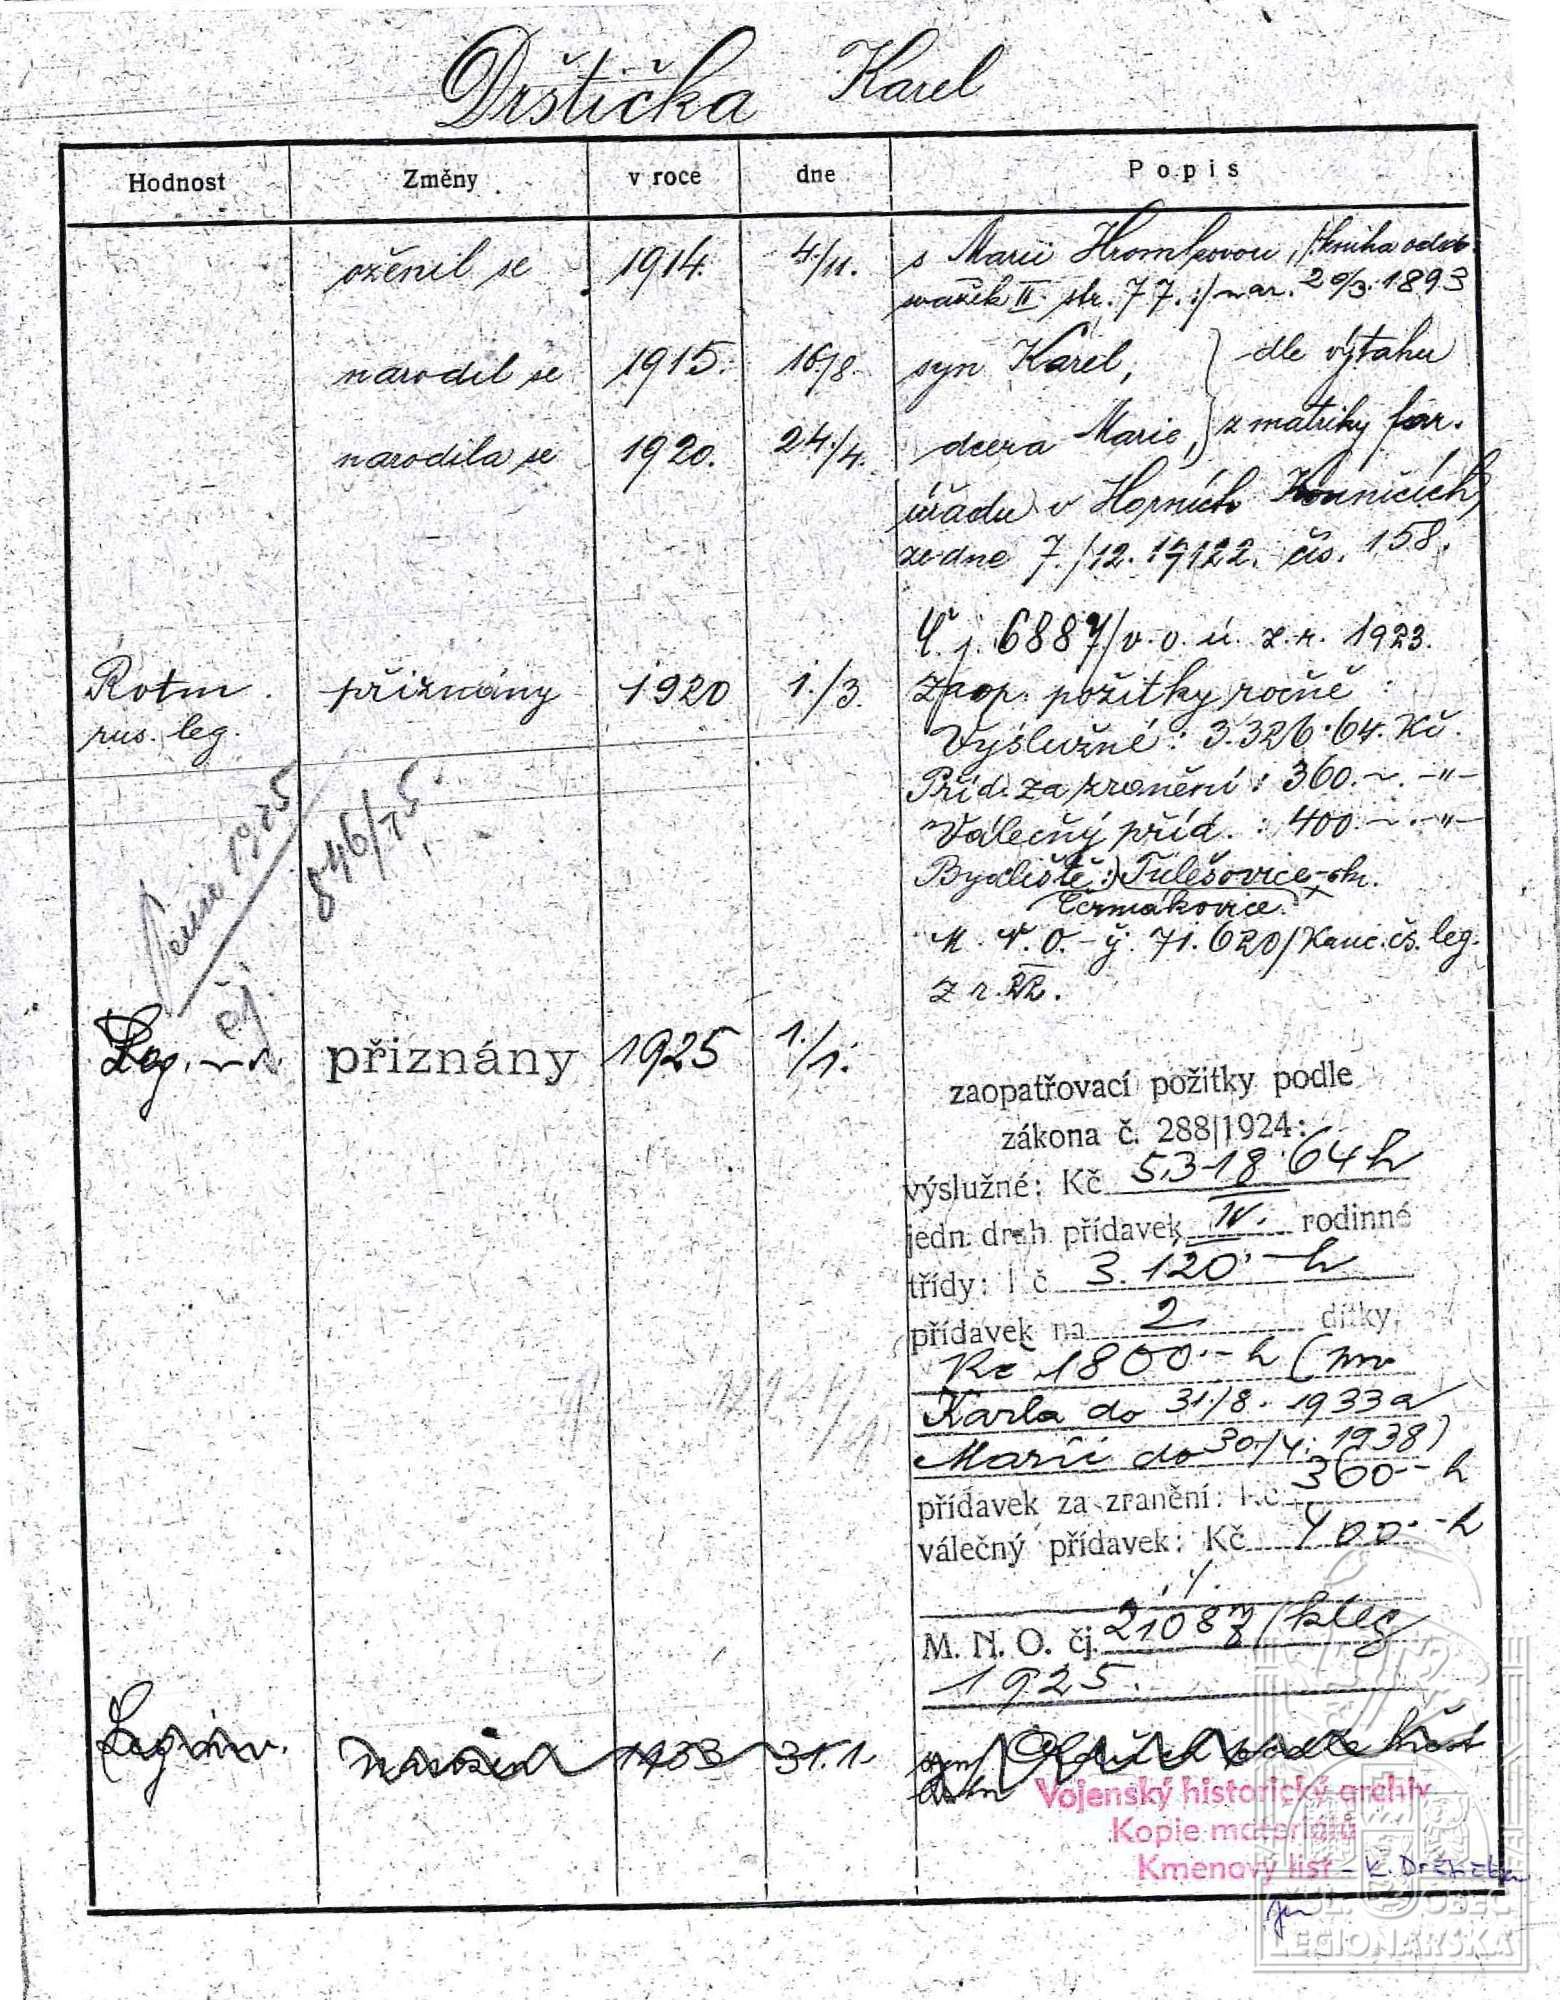 Drštička Karel
Hodnost Změny v roce dne Popis
oženil se 1914. 4./11. s Marií Hromkovou, /:kniha oddav.
svazek II. str. 77.:/ nar. 20/3. 1893
narodil se 1915. 16/8. syn Karel, } dle výtahu
narodila se 1920. 24./4. dcera Marie, z matriky far.
úřadu v Horních Kouničích
ze dne 7./12. 19122. čís. 158.
Č. j. 6887/v. o. ú. z. r. 1923.
Rotm. přiznány 1920 1./3. Zaop. požitky ročně:
rus. leg. Výslužné: 3.326·64. Kč.
Příd. za zranění: 360.–. –"–
Válečný příd.: 400.–. –"–
1925 846/25.
Bydliště: Tulešovice
Čermákovice
M. N. O. – 71.620/Kanc. čs. leg.
z r. 22.
čj.
Leg. přiznány 1925 1./1. zaopatřovací požitky podle
zákona č. 288/1924:
výslužné: Kč 5.318·64 h
jedn. drah. přídavek IV. rodinné
třídy: Kč 3.120·– h
přídavek na 2 dítky,
Kč 1800·– h (na
Karla do 31./8. 1933 a
Marii do 30./4. 1938)
přídavek za zranění: Kč 360·– h
válečný přídavek: Kč 400·– h
M. N. O. čj. 21087/kleg
1925.
1933 31.1 syn
Vojenský historický archiv
Kopie materiálů
Kmenový list – K. Drštička
ČSL. OBEC
LEGIONÁŘSKÁ